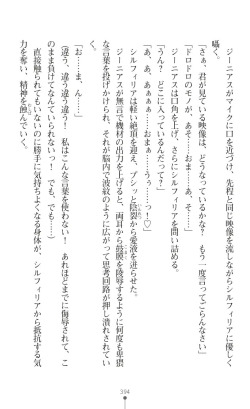 ジーニアスがマイクに口を近づけ、先程と同じ映像を流しながらシルフィリアに優しく
囁く。
「さぁ、君が見ている映像は、どうなっているかな? もう一度言ってごらんなさい」
「ドロドロのモノが、お……おま……あ、そ……」
ジーニアスは口角を上げ、さらにシルフィリアを問い詰める。
「うん? どこに入っているんだって?」
「あ、あ、あぁぁぁ……お……うぅ……っ!♡」
シルフィリアは軽い絶頂を迎え、プシャッと陰裂から愛液を溢れさせた。
ジーニアスが無言で機材の出力を上げると、両耳から鼓膜を陵辱するように何度も卑猥
な言葉を投げかけられ、それが脳内で波紋のように広がって思考回路が押し潰されてい
く。
「お……ま、ん……」
(違う、違う違う違う! 私はこんな言葉を使わない! あれほどまでに侮辱されて、こ
のまま負けてなんていられないわっ! でも、でも……)
直接触られてもいないのに勝手に気持ちよくなる身体が、シルフィリアから抵抗する気
力を奪い、精神を蝕んでいく。
394